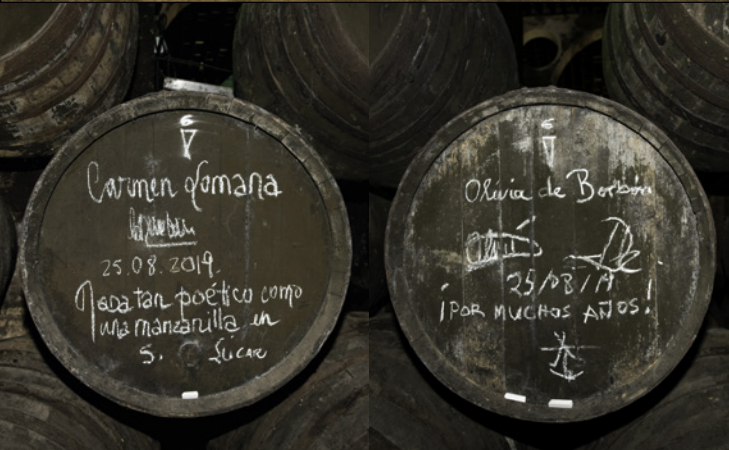 6
Carmen Lomana
25.08.2019.
Nada tan poético como
una manzanilla en
S. Lucar
6
Olivia de Borbón
25/08/19
¡POR MUCHOS AÑOS!